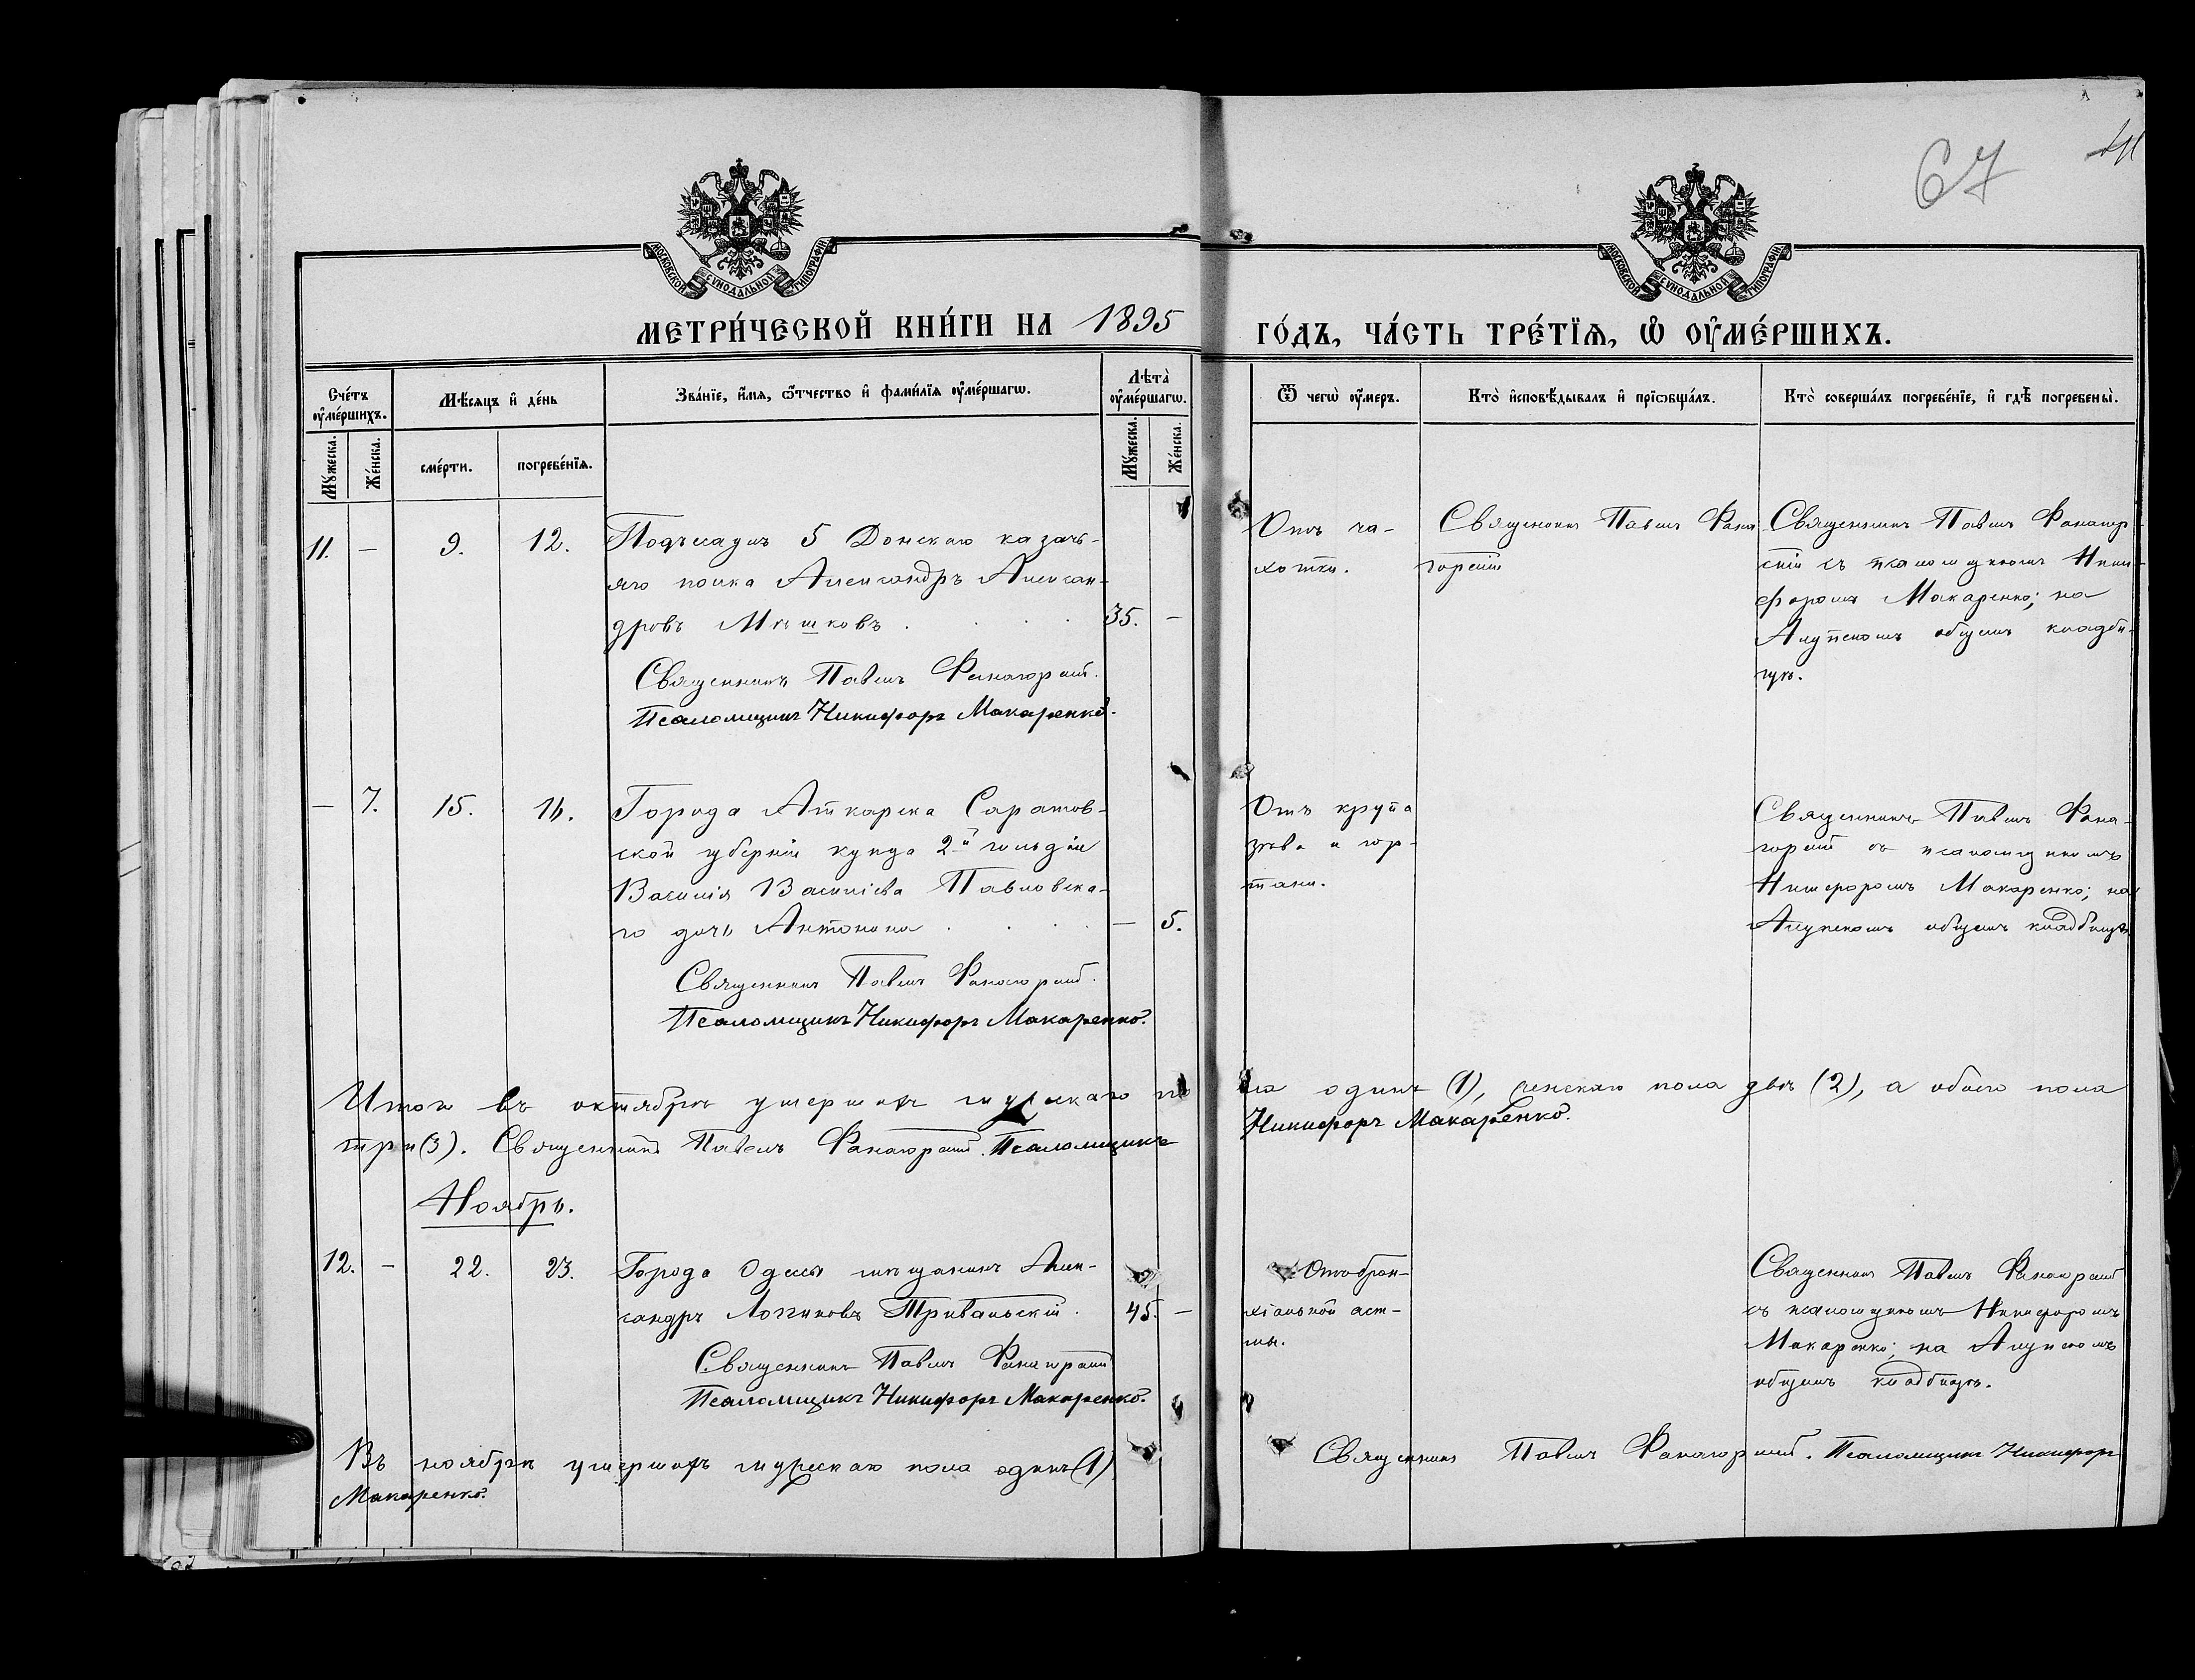 67
МОСКОВСКОЙ СѴНОДАЛЬНОЙ ТИПОГРАФІИ
МОСКОВСКОЙ СѴНОДАЛЬНОЙ ТИПОГРАФІИ
МЕТРИ́ЧЕСКОЙ КНИ́ГИ НА 1895 ГО́ДЪ, ЧА́СТЬ ТРЕ́ТЇѦ, Ѡ҆ ОУ҆МЕ́РШИХЪ.
Сче́тъ оу҆ме́ршихъ.
Мꙋ́жеска.
Же́нска.
Мѣ́сяцъ и҆ де́нь
сме́рти.
погребе́нїѧ.
Зва́нїе, и҆́мѧ, ѻ҆́тчество и҆ фами́лїѧ оу҆ме́ршагѡ.
Лѣ́та оу҆ме́ршагѡ.
Мꙋ́жеска.
Же́нска.
Ѿ чегѡ̀ оу҆́меръ.
Кто̀ и҆сповѣ́дывалъ и҆ прїѡбща́лъ.
Кто̀ соверша́лъ погребе́нїе, и҆ гдѣ̀ погребены̀.
11. — 9. 12.
Подъесаулъ 5 Донскаго казачь-
яго полка Александръ Алексан-
дровъ Мешковъ . . . . 35. —
Священникъ Павелъ Фанагорскій.
Псаломщикъ Никифоръ Макаренко.
Отъ ча-
хотки.
Священникъ Павелъ Фана-
горскій
Священникъ Павелъ Фанагор-
скій съ псаломщикомъ Ники-
форомъ Макаренко; на
Алупскомъ общемъ кладби-
щѣ.
— 7. 15. 16.
Города Аткарска Саратов-
ской губерніи купца 2й гильдіи
Василія Васильева Павловска-
го дочь Антонина . . . — 5.
Священникъ Павелъ Фанагорскій.
Псаломщикъ Никифоръ Макаренко.
Отъ крупа
зѣва и гор-
тани.
Священникъ Павелъ Фана-
горскій съ псаломщикомъ
Никифоромъ Макаренко; на
Алупскомъ общемъ кладбищѣ
Итого въ октябрѣ умершихъ мужскаго по ла одинъ (1), женскаго пола двѣ (2), а обоего пола
три (3). Священникъ Павелъ Фанагорскій. Псаломщикъ Никифоръ Макаренко.
Ноябрь.
12. — 22. 23.
Города Одессы мѣщанинъ Алек-
сандръ Логгиновъ Тривальскій . 45. —
Священникъ Павелъ Фанагорскій
Псаломщикъ Никифоръ Макаренко.
Отъ брон-
хіальной аст-
мы.
Священникъ Павелъ Фанагорскій
съ псаломщикомъ Никифоромъ
Макаренко; на Алупскомъ
общемъ кладбищѣ.
Въ ноябрѣ умершихъ мужескаго пола одинъ (1) Священникъ Павелъ Фанагорскій. Псаломщикъ Никифоръ
Макаренко.